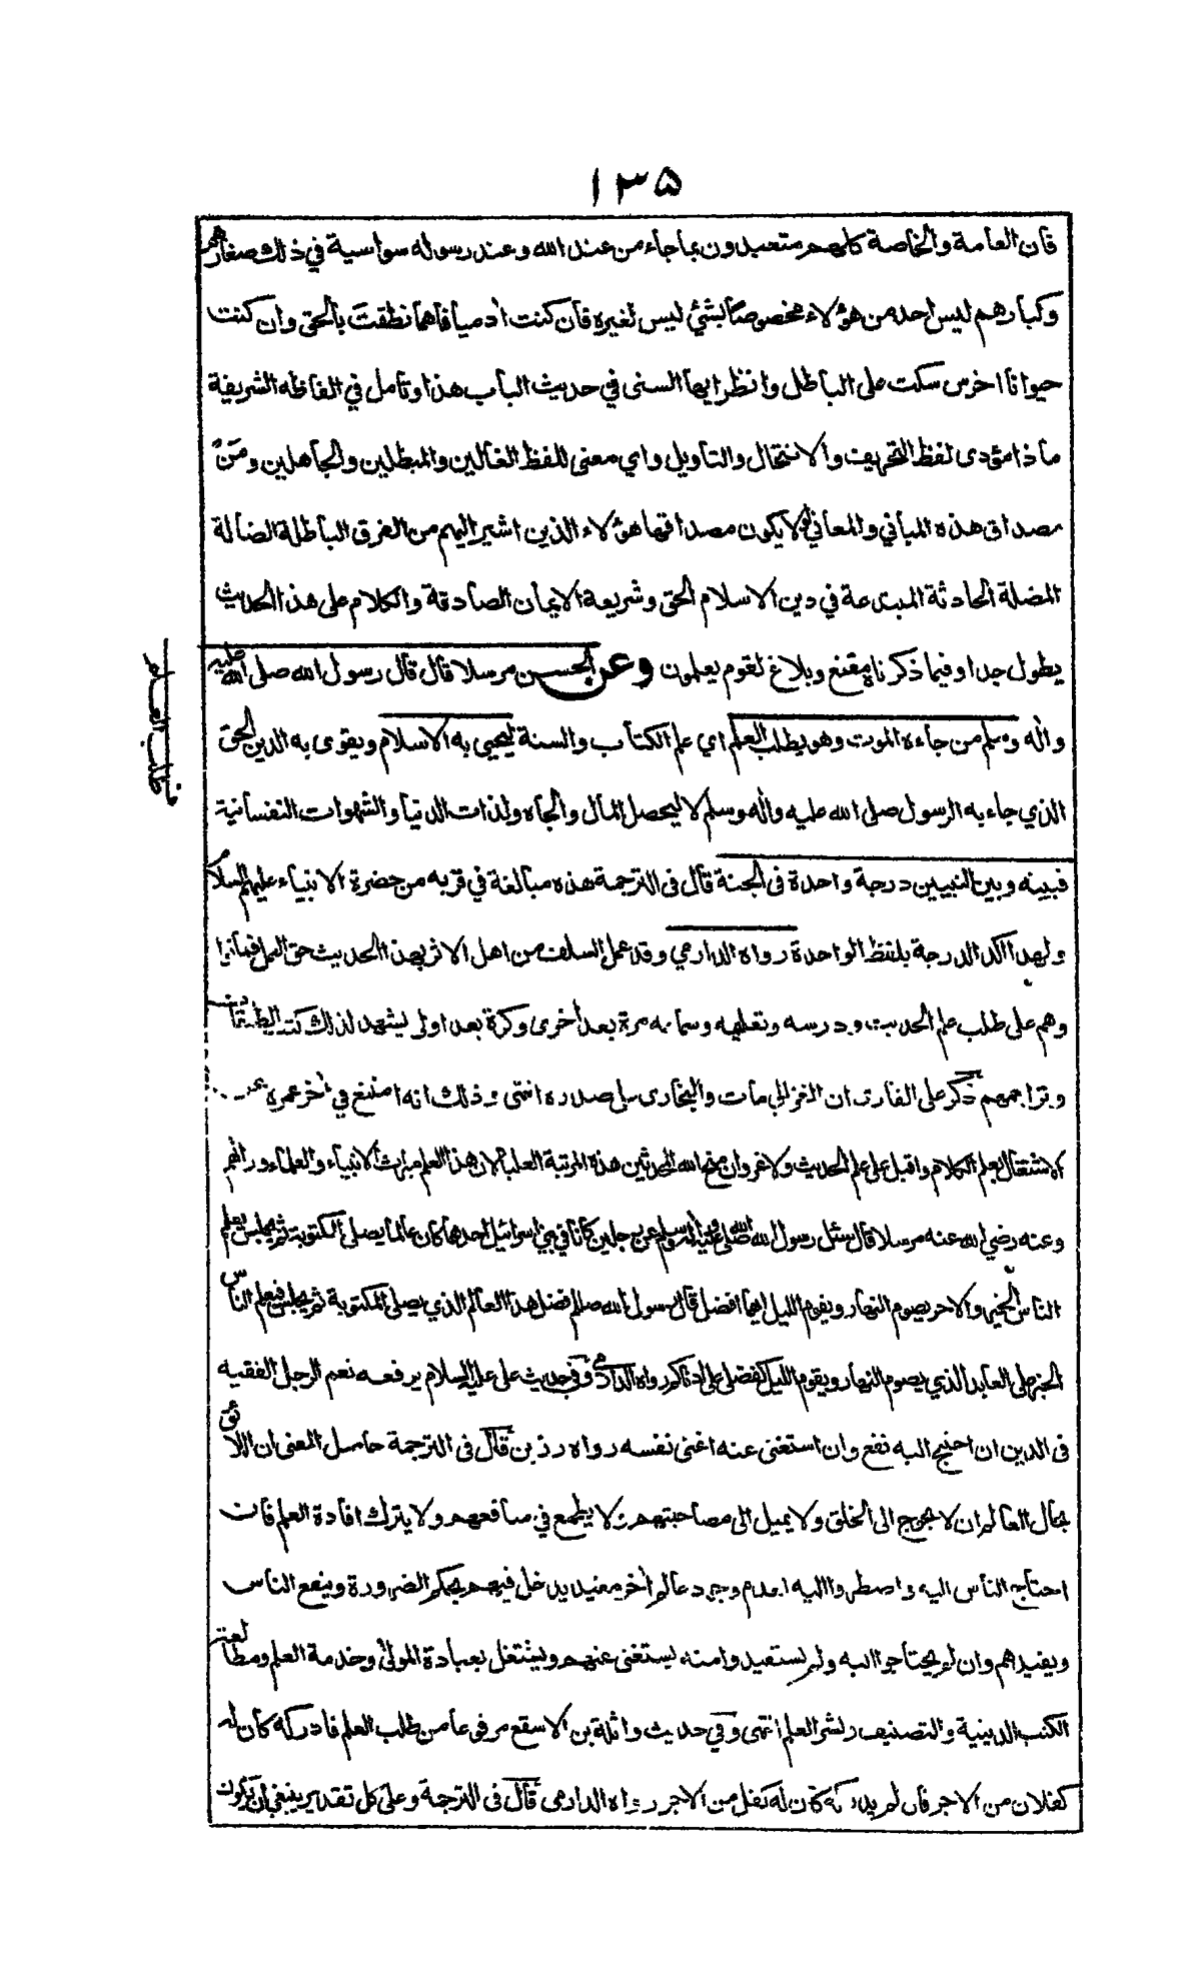 ١٣٥
فان العامة والخاصة كلهم متعبدون بما جاء من عند الله وعند رسوله سواسية في ذلك صغارهم
وكبارهم ليس احد من هؤلاء مخصوصا بشئ ليس لغيره فان كنت ادميا فاهما نطقت بالحق وان كنت
حيوانا اخرس سكت على الباطل وانظر ايها السنى في حديث الباب هذا وتامل في الفاظه الشريفة
ماذا مؤدى لفظ التحريف والانتحال والتاويل واي معنى للفظ الغالين والمبطلين والجاهلين ومن
مصداق هذه المباني والمعاني لولا يكون مصداقها هؤلاء الذين اشير اليهم من الفرق الباطلة الضالة
المضلة الحادثة المبتدعة في دين الاسلام الحق وشريعة الايمان الصادقة والكلام على هذا الحديث
يطول جدا وفيما ذكرناه مقنع وبلاغ لقوم يعلمون وعن الحسن مرسلا قال قال رسول الله صلى الله عليه
واله وسلم من جاءه الموت وهو يطلب العلم اي علم الكتاب والسنة ليحيي به الاسلام ويقوى به الدين الحق
الذي جاء به الرسول صلى الله عليه واله وسلم لا ليحصل المال والجاه ولذات الدنيا والشهوات النفسانية
فبينه وبين النبيين درجة واحدة في الجنة قال فى الترجمة هذه مبالغة في قربه من حضرة الانبياء عليهم السلام
ولهذا اكد الدرجة بلفظ الواحدة رواه الدارمي وقد عمل السلف من اهل الاثر بهذا الحديث حق العمل فماتوا
وهم على طلب علم الحديث ودرسه وتعليمه وسماعه مرة بعد اخرى وكرة بعد اولى يشهد لذلك كتب الطبقات
وتراجمهم ذكر على القارى ان الغزالي مات والبخارى على صدره انتهى وذلك انه امتنع في اخر عمره
الاشتغال بعلم الكلام واقبل على علم الحديث ولا غرو ان منح الله المحدثين هذه المرتبة العليا لان هذا العلم ميراث الانبياء والعلماء ورثهم
وعنه رضي الله عنه مرسلا قال سئل رسول الله صلى الله عليه واله وسلم عن رجلين كانا في بني اسرائيل احدهما كان عالما يصلى المكتوبة ثم يجلس يعلم
الناس الخير والاخر يصوم النهار ويقوم الليل ايهما افضل قال رسول الله صللم فضل هذا العالم الذي يصلى المكتوبة ثم يجلس فيعلم الناس
الخير على العابد الذي يصوم النهار ويقوم الليل كفضلي على ادناكم رواه الدارمي وفي حديث على عليه السلام يرفعه نعم الرجل الفقيه
فى الدين ان احتيج اليه نفع وان استغنى عنه اغنى نفسه رواه رزين قال فى الترجمة حاصل المعنى ان اللائق
بحال العالم ان لا يحوج الى الخلق ولا يميل الى مصاحبتهم ولا يطمع في منافعهم ولا يترك افادة العلم فان
احتاج الناس اليه واضطروا اليه لعدم وجود عالم اخر مفيد يدخل فيهم بحكم الضرورة وينفع الناس
ويفيدهم وان لم يحتاجوا اليه ولم يستفيدوا منه يستغنى عنهم ويشتغل بعبادة المولى وخدمة العلم ومطالعة
الكتب الدينية والتصنيف ونشر العلم انتهى وفي حديث واثلة بن الاسقع مرفوعا من طلب العلم فادركه كان له
كفلان من الاجر فان لم يدركه كان له كفل من الاجر رواه الدارمى قال فى الترجمة وعلى كل تقدير ينبغي ان يكون
طلب العلم